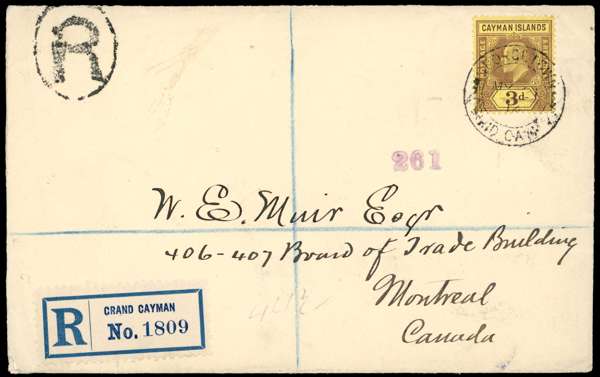 R
CAYMAN ISLANDS
POSTAGE
3d
261
W. E. Muir Esqr
406-407 Board of Trade Building
Montreal
Canada
R
GRAND CAYMAN
No. 1809